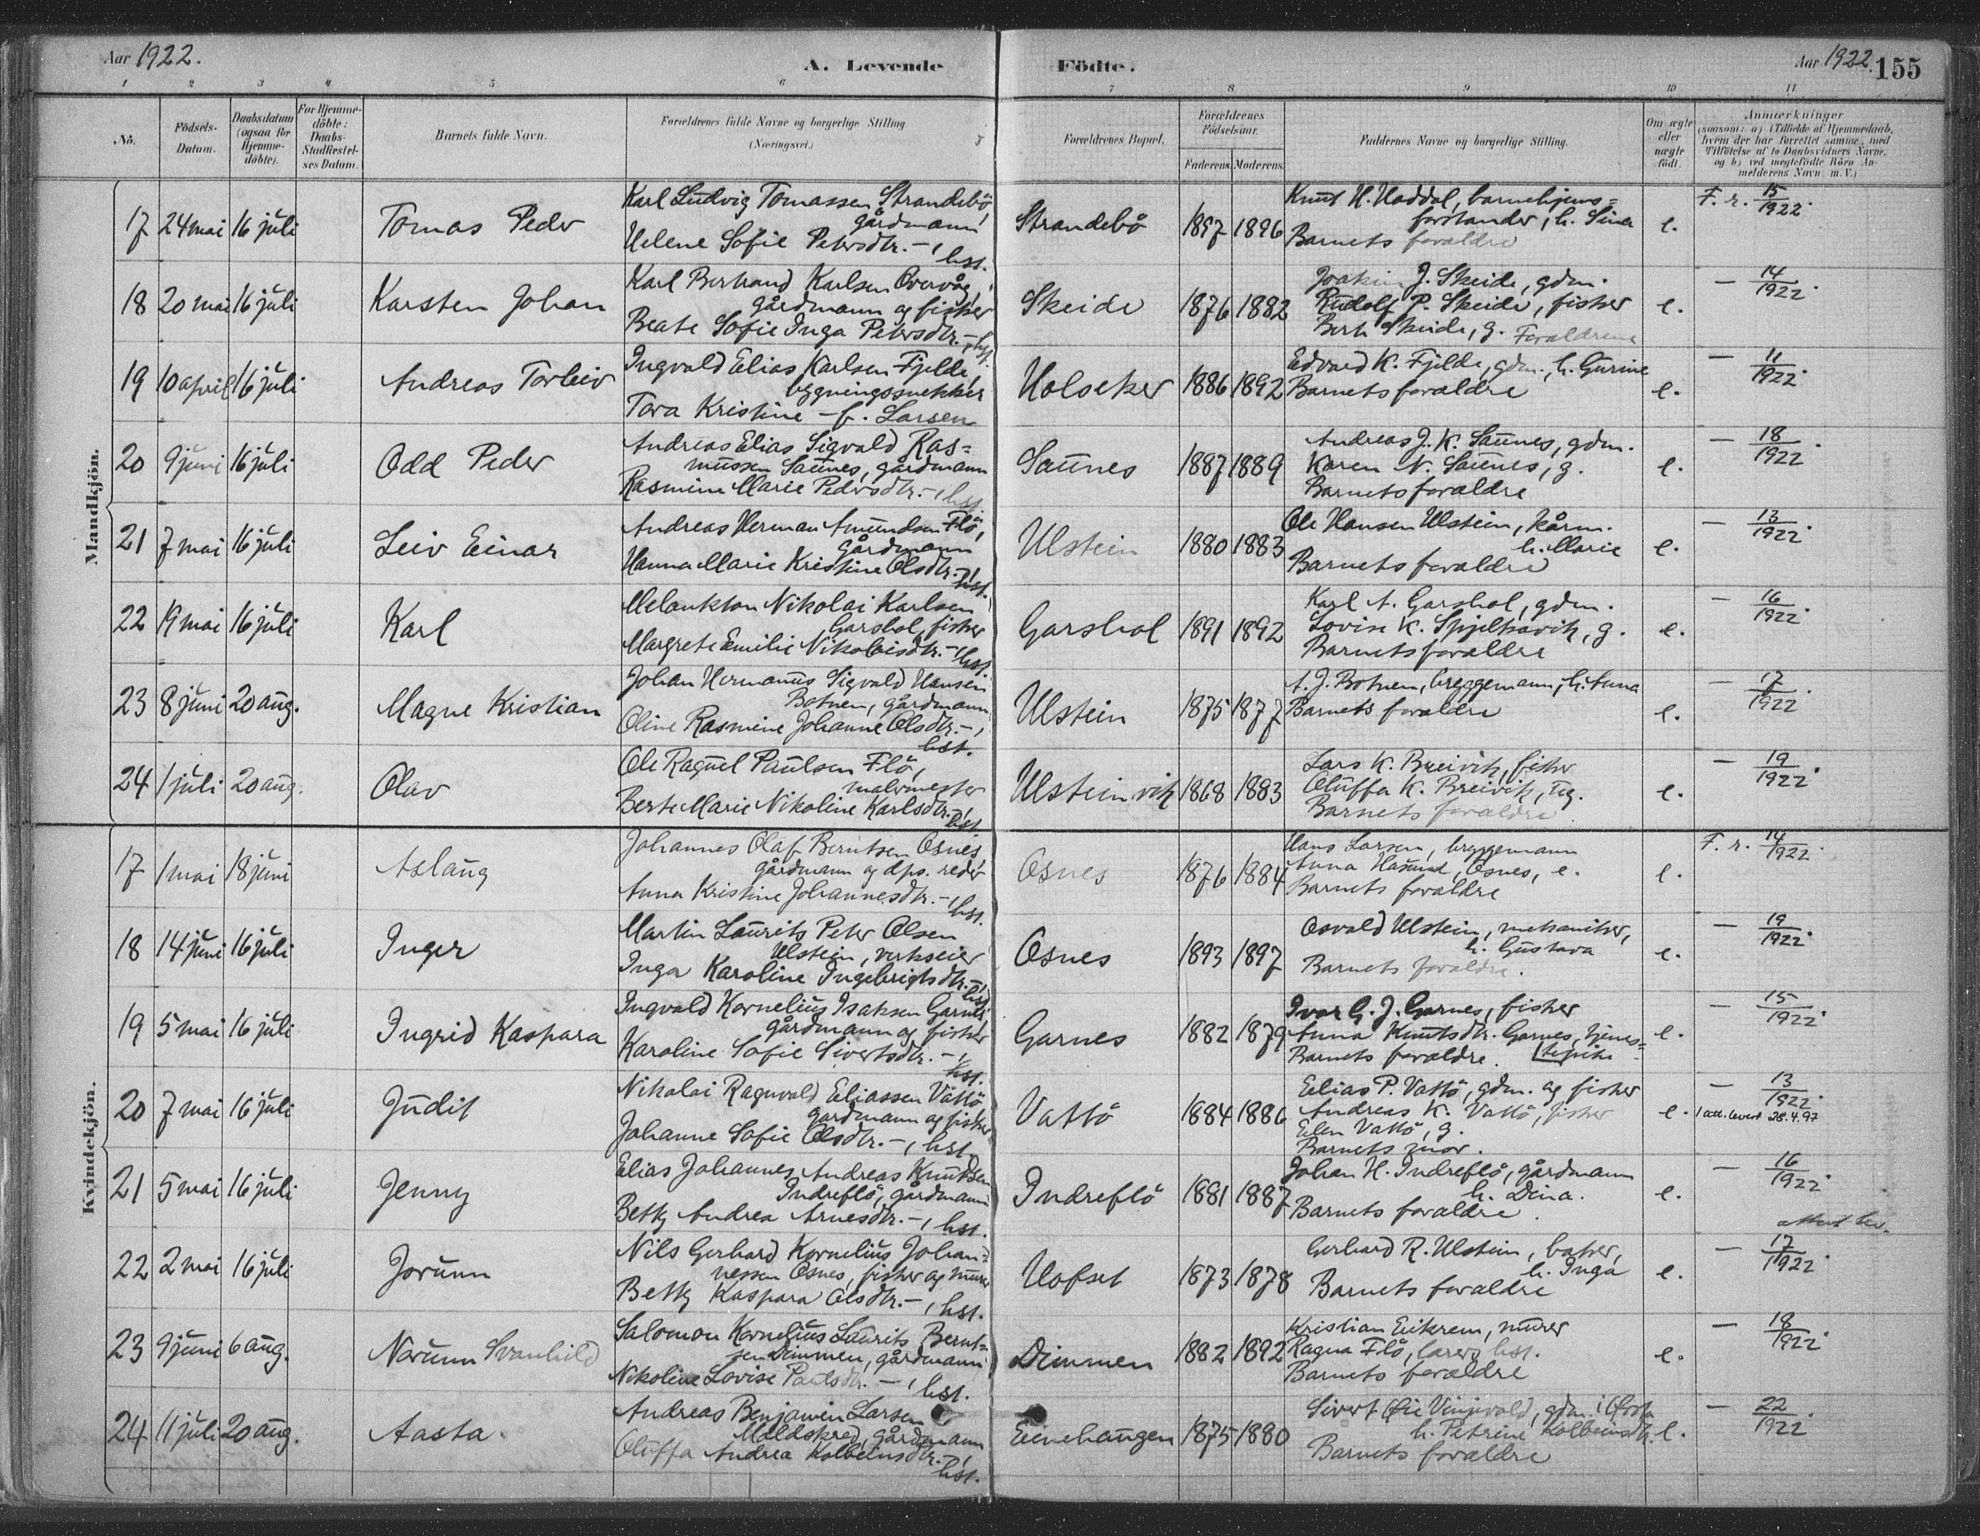 Aar 1922.
A. Levende Födte.
Aar 1922. 155
1 2 3 4 5 6 7 8 9 10 11
No.
Födsels-Datum.
Daabsdatum (ogsaa for Hjemme-döbte).
For Hjemme-döbte: Daabs-Stadfæstel-ses Datum.
Barnets fulde Navn.
Forældrenes fulde Navne og borgerlige Stilling (Næringsvei.)
Forældrenes Bopæl.
Forældrenes Födselsaar.
Faderens. Moderens.
Faddernes Navne og borgerlige Stilling.
Om ægte eller uægte födt.
Anmærkninger
(saasom: a) i Tilfælde af Hjemmedaab, hvem der har forrettet samme, med Tilföielse af to Daabsvidners Navne, og b) ved uægtefödte Börn An-melderens Navn m. V.)
Mandkjön.
17 24 mai 16 juli Tomas Peder
Karl Ludvig Tomassen Strandebö,
gårdmann
Helene Sofie Petersdtr. –, hst.
Strandebö 1897 1896
Knut H. Haddal, barnehjems=
forstander, h. Sina
Barnets foraldre
e. F. r. 15/1922.
18 20 mai 16 juli Karsten Johan
Karl Bertrand Karlsen Overvåg,
gårdmann og fisker
Beate Sofie Inga Petersdtr. –, hst.
Skeide 1876 1882
Joakim J. Skeide, gdm.
Rudolf P. Skeide, fisker
Berte Skeide, g. Foraldrene
e. – 14/1922.
19 10 april 16 juli Andreas Torleiv
Ingvald Elias Karlsen Fjelde,
bygningssnekker
Tora Kristine – f. Larsen
Holseker 1886 1892
Edvard K. Fjelde, gdm., h. Gurine
Barnets foraldre
e. – 11/1922.
20 9 juni 16 juli Odd Peder
Andreas Elias Sigvald Ras=
mussen Saunes, gårdmann
Rasmine Marie Pedersdtr. –, hst.
Saunes 1887 1889
Andreas J. K. Saunes, gdm.
Karen N. Saunes, g.
Barnets foraldre
e. – 18/1922.
21 7 mai 16 juli Leiv Einar
Andreas Herman Amundsen Flö,
gårdmann
Hanna Marie Kristine Olsdtr. –, hst.
Ulstein 1880 1883
Ole Hansen Ulstein, kårm.
h. Marie
Barnets foraldre
e. – 13/1922.
22 19 mai 16 juli Karl
Melankton Nikolai Karlsen
Garshol, fisker
Margrete Emilie Nikolaisdtr. –, hst.
Garshol 1891 1892
Karl A. Garshol, gdm.
Lovise K. Spjelkavik, g.
Barnets foraldre
e. – 16/1922.
23 8 juni 20 aug. Magne Kristian
Johan Hermanus Sigvald Hansen
Botnen, gårdmann
Oline Rasmine Johanne Olsdtr. –,
hst.
Ulstein 1875 1877
A. J. Botnen, bryggemann, h. Anna
Barnets foraldre
e. – 17/1922.
24 1 juli 20 aug. Olav
Ole Raguel Paulsen Flö,
malermester
Berte Marie Nikoline Karlsdtr. –, hst.
Ulsteinvik 1868 1883
Lars K. Breivik, fisker
Oluffa K. Breivik, ug.
Barnets foraldre
e. – 19/1922.
Kvindekjön.
17 1 mai 18 juni Aslaug
Johannes Olaf Berntsen Osnes
gårdmann og dps. reder
Anna Kristine Johannesdtr. –, hst.
Osnes 1876 1884
Hans Larsen, bryggemann
Anna Hasund, Osnes, e.
Barnets foraldre
e. F. r. 14/1922.
18 14 juni 16 juli Inger
Martin Laurits Peter Olsen
Ulstein, verkseier
Inga Karoline Ingebrigtsdtr. –, hst.
Osnes 1893 1897
Osvald Ulstein, mekaniker,
h. Gustava
Barnets foraldre.
e. – 19/1922.
19 5 mai 16 juli Ingrid Kaspara
Ingvald Kornelius Isaksen Garnes
gårdmann og fisker
Karoline Sofie Sivertsdtr. –,
hst.
Garnes 1882 1879
Ivar G. J. Garnes, fisker
Anna Knutsdtr. Garnes, tjenes=
Barnets foraldre. tepike
e. – 15/1922.
20 7 mai 16 juli Judit
Nikolai Ragnvald Eliassen Vattö
gårdmann og fisker
Johanne Sofie Olsdtr. –, hst.
Vattö 1884 1886
Elias P. Vattö, gdm. og fisker
Andreas K. Vattö, fisker
Elen Vattö, g.
Barnets mor.
e. – 13/1922.
1 att. levert 28.4.97
21 5 mai 16 juli Jenny
Elias Johannes Andreas Knutsen
Indreflö, gårdmann
Betty Andrea Arnesdtr. –, hst.
Indreflö 1881 1887
Johan H. Indreflö, gårdmann
h. Dina.
Barnets foraldre.
e. – 16/1922.
attest lev.
22 2 mai 16 juli Jorunn
Nils Gerhard Kornelius Johan=
nessen Osnes, fisker og murer
Betty Kaspara Olsdtr. –, hst.
Hofset 1873 1878
Gerhard R. Ulstein, baker,
h. Inga
Barnets foraldre
e. – 17/1922.
23 9 juni 6 aug. Norunn Svanhild
Salomon Kornelius Laurits Bernt=
sen Dimmen, gårdmann
Nikoline Lovise Paulsdtr. –, hst.
Dimmen 1882 1892
Kristian Eikrem, murer
Ragna Flö, lærer hst.
Barnets foraldre
e. – 18/1922.
24 11 juli 20 aug. Aasta
Andreas Benjamin Larsen
Maldskred, gårdmann
Oluffa Andrea Kolbeinsdtr. –,
hst.
Eienehaugen 1875 1880
Sivert Öie Vinjevold, gdm. i Örsta
h. Petrine Kolbeinsdtr.
Barnets foraldre
e. – 22/1922.